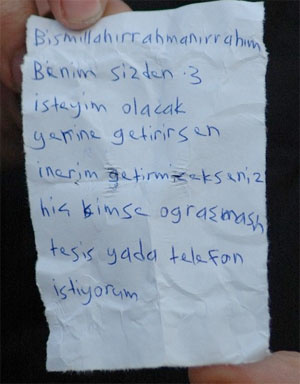 Bismillahırrahmanırrahım
Benim sizden 3
isteyim olacak
yerine getirirsen
inerim getirmizekseniz
hiç kimse ograşmash
tesis yada telefon
istiyorum